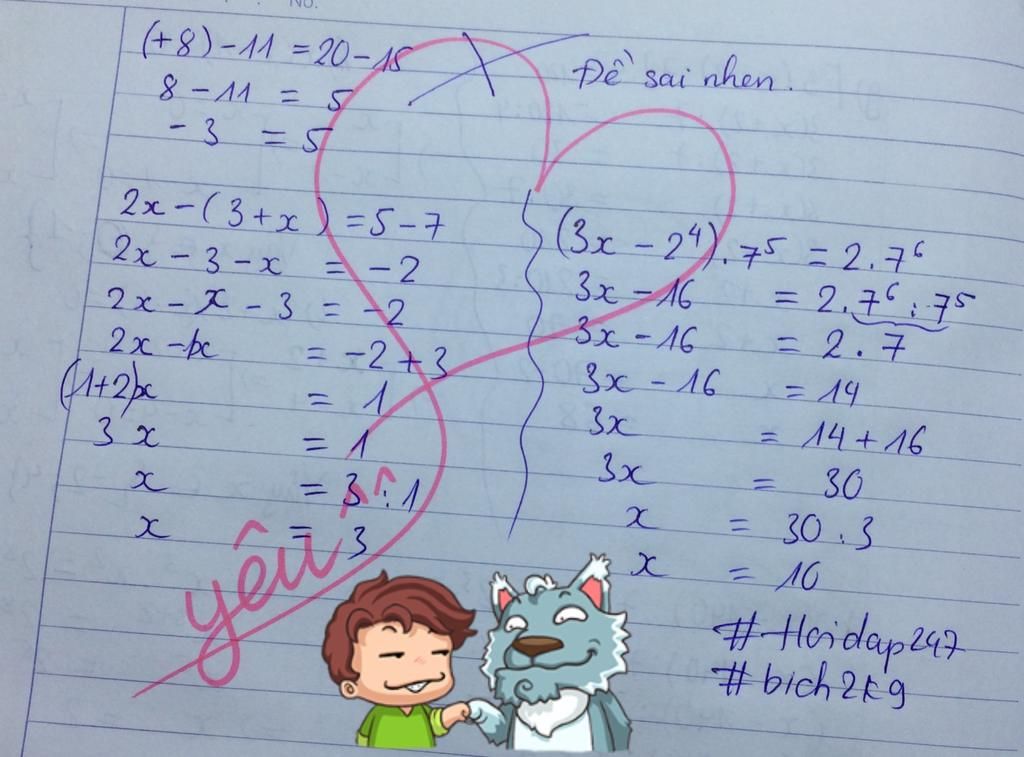 No.
(+8) - 11 = 20 - 15
8 - 11 = 5
- 3 = 5
Đề sai nhen.
2x - (3 + x) = 5 - 7
2x - 3 - x = -2
2x - x - 3 = -2
2x - 1x = -2 + 3
(1+2)x = 1
3 x = 1
x = 3 : 1
x = 3
(3x - 2⁴) . 7⁵ = 2 . 7⁶
3x - 16 = 2 . 7⁶ : 7⁵
3x - 16 = 2 . 7
3x - 16 = 14
3x = 14 + 16
3x = 30
x = 30 : 3
x = 10
yêu ^^
#Hoidap247
#bich2k9